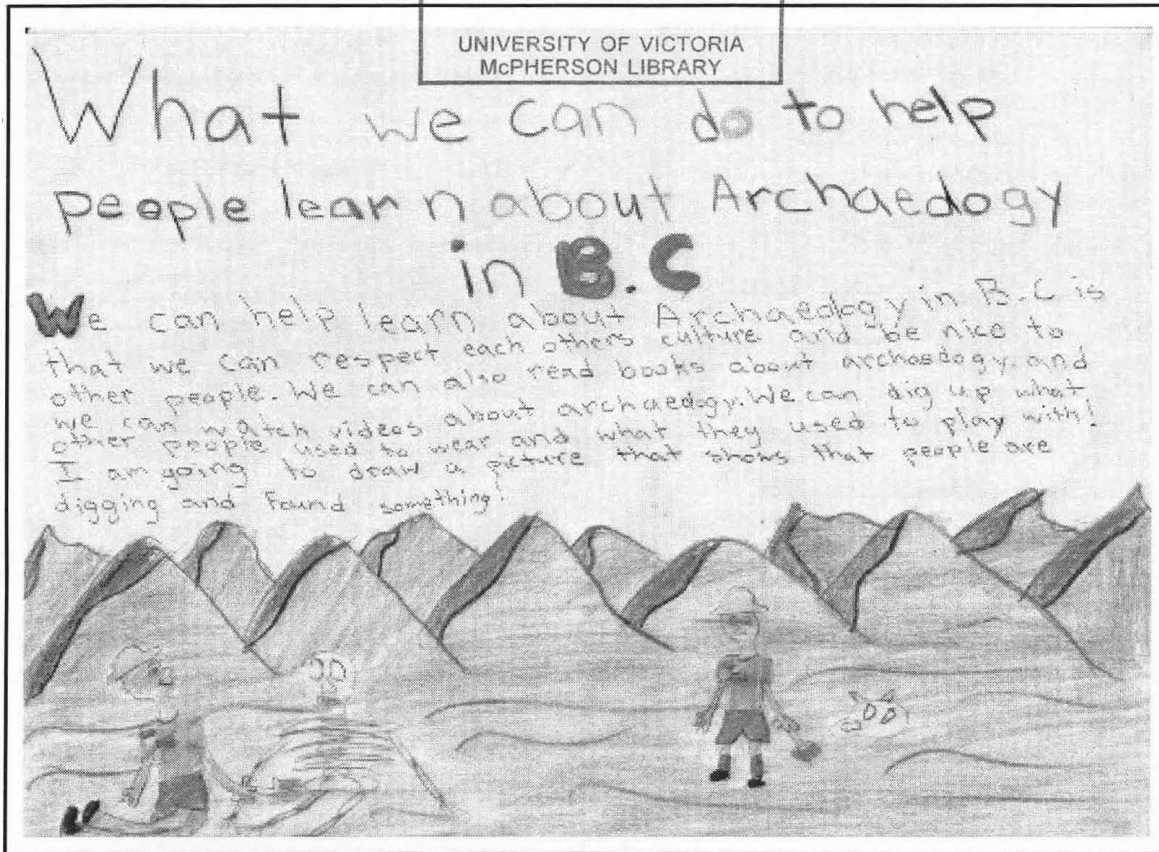 UNIVERSITY OF VICTORIA
McPHERSON LIBRARY
What we can do to help
people learn about Archaedogy
in B.C
We can help learn about Archaedogy in B.C is
that we can respect each others culture and be nice to
other people. We can also read books about archaedogy. and
we can watch videos about archaedogy. We can dig up what
other people used to wear and what they used to play with!
I am going to draw a picture that shows that people are
digging and found something!